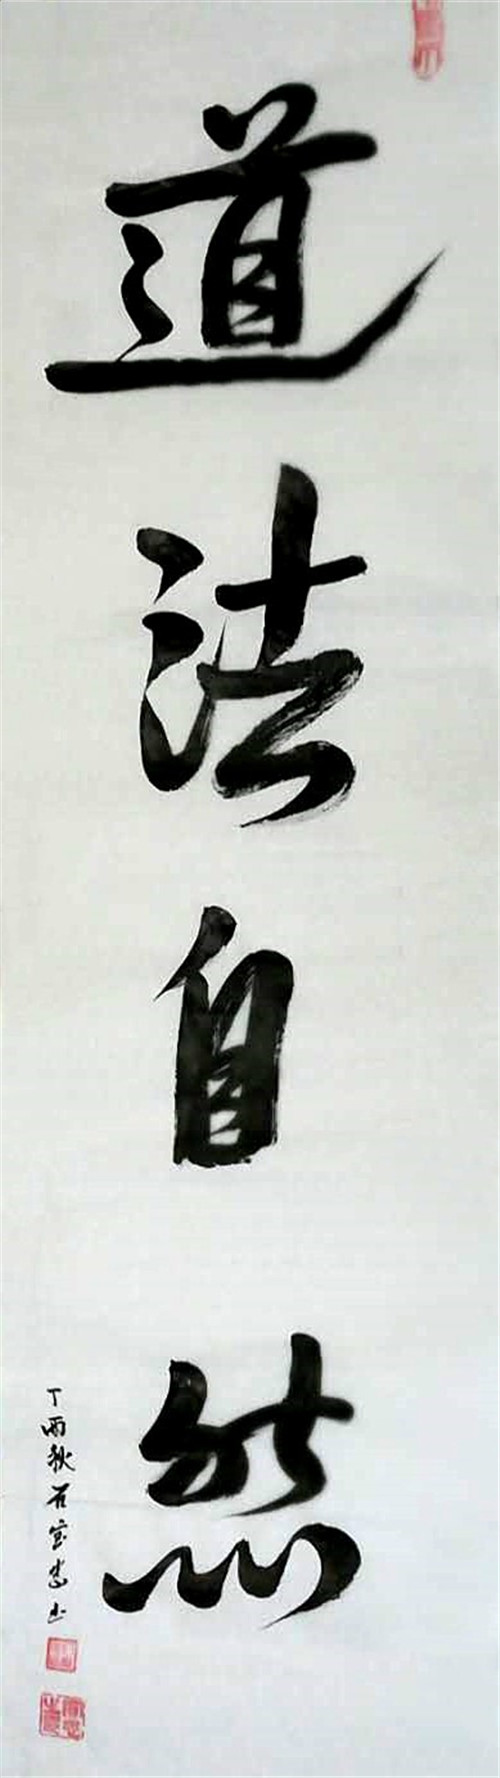 道法自然
丁酉秋石宝